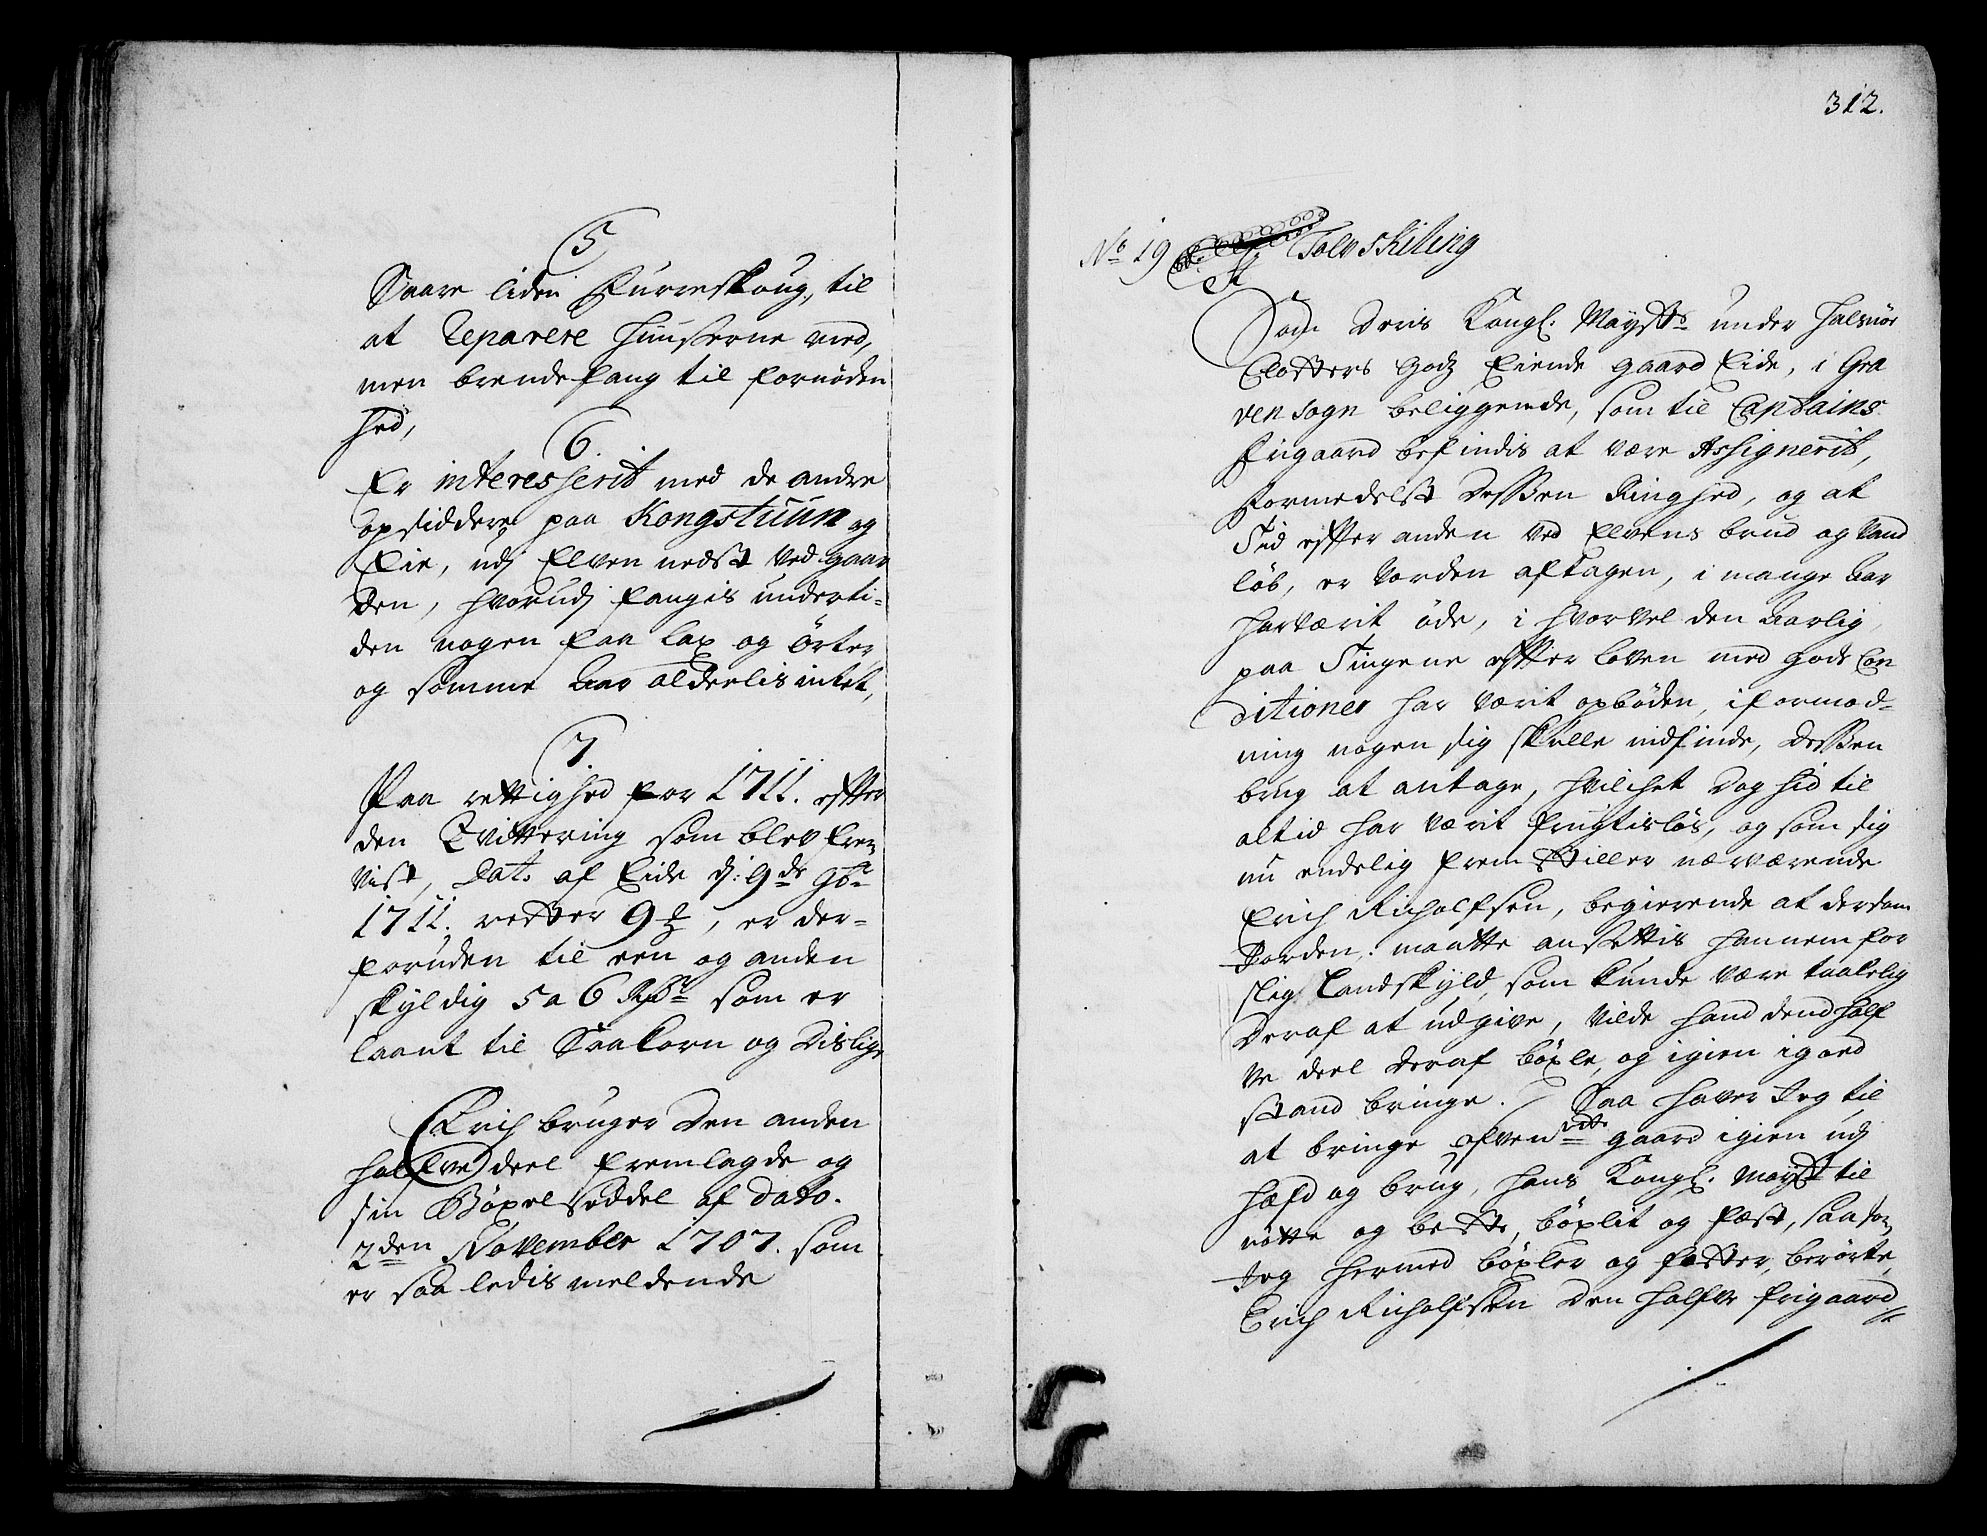 5
Saare liden Furreskoug, til
at Reparere Huuserne med,
men brendefang til fornøden
hed,
6.
Er interesserit med de andre
opsiddere paa Kongstuun og
Eie, udj Elven nedst ved gaar
den, hvorudj fangis underti-
den nogen faa lax og ørter,
og somme Aar alderlis intet,
7
Paa rettighed for 1711. efter
den Qvittering som blev frem
vist, Dat. af Eide d: 9de 9br
1711. rester 9 ℔, er der-
foruden til een og anden
skyldig 5 a 6 Rdr som er
laant til Saakorn og dislige
Erich bruger den anden
halfve deel fremlagde og
sin Bøxelseddel af dato.
2den November 1707. som
er saa ledis meldende
312.
No 19 Tolv Skiling
Som deris Kongl. Maysts under Halsnøe
Closters Godz Eiende gaard Eide, i Gra
ven sogn beliggende, som til Captains
frigaard befindis at være Assignerit,
formedelst dessen Ringhed, og at
Tid efter anden ved Elvens brud og Vand
løb, er vorden aftagen, i mange Aar
har værit øde, i hvorvel den Aarlig
paa Tingene efter loven med gode Con
ditioner har værit opbøden, i formod-
ning nogen sig skulle indfinde, dessen
brug at antage, hvilchet dog hid til
altid har værit frugtisløs, og som sig
nu endelig frem stiller nærværende
Erich Richolfsen, begierende at dersom
Jorden: maatte ansettis hannem for
slig Landskyld, som kunde være taalelig
deraf at udgive, vilde hand dend half
ve deel deraf bøxle, og igien i goed
stand bringe. Saa haver Jeg til
at bringe ofven bte gaard igien udj
hæfd og brug, hans Kongl. Mayst til
nøtte og beste, bøxlit og fæst, saa som
Jeg hermed bøxler og fæster, berørte,
Erich Richolfsen den halfve frigaard